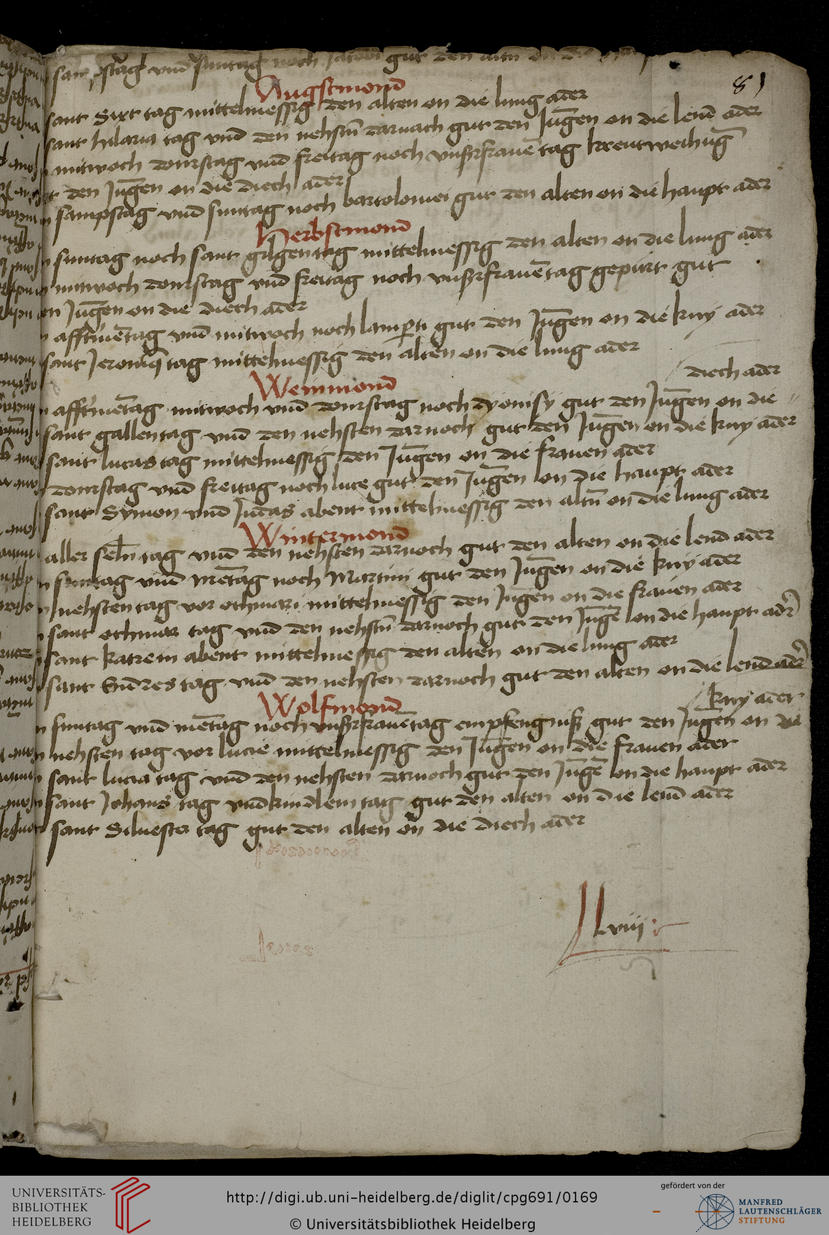 81
sampstag vnd suntag noch Jacobi gut den altn on die
Augstmond
sant Sixt tag mittelmessig den alten on die lung ader
sant hilaria tag vnd den nehstn darnach gut den Jungen on die lend ader
mitwoch donrstag vnd freitag noch vnßrfrawe tag krewtweihug
gut den Jungen on die diech ader
sampstag vnd suntag noch bartolomei gut den alten on die haupt ader
Herbstmond
suntag noch sant gilgen tag mittelmessig den alten on die lung ader
mitwoch donrstag vnd freitag noch vnßrfrawe tag gepurt gut
den Jungen on die diech ader
afftermetag vnd mitwoch noch lamperti gut den Jungen on die kny ader
sant Jeronimus tag mittelmessig den alten on die lung ader
Weinmond
diech ader
afftermetag mitwoch vnd donrstag noch dyonisy gut den Jungen on die
sant gallen tag vnd den nehsten darnoch gut den Jungen on die kny ader
sant lucas tag mittelmessig den Jungen on die frawen ader
donrstag vnd freitag noch luce gut den Jungen on die haupt ader
sant Symon vnd Judas abent mittelmessig den altn on die lung ader
Wintermond
aller seln tag vnd den nehsten darnoch gut den alten on die lend ader
suntag vnd metag noch Martini gut den Jungen on die kny ader
nehsten tag vor othmari mittelmessig den Jungen on die frawen ader
sant othmar tag vnd den nehstn darnoch gut den Junge on die haupt adr
sant katrein abent mittelmessig den alten on die lung ader
sant Endres tag vnd den nehsten darnoch gut den alten on die lend ader
Wolfmond
kny ader
suntag vnd metag noch vnßrfrawe tag empfengniß gut den Jungen on die
nehsten tag vor lucie mittelmessig den Jungen on die frawen ader
sant lucia tag vnd den nehsten darnoch gut den Junge on die haupt ader
sant Johans tag vnd kindlein tag gut den alten on die lend ader
sant Siluester tag gut den alten on die diech ader
Lxviij
UNIVERSITÄTS-
BIBLIOTHEK
HEIDELBERG
http://digi.ub.uni-heidelberg.de/diglit/cpg691/0169
© Universitätsbibliothek Heidelberg
gefördert von der
MANFRED
LAUTENSCHLÄGER
STIFTUNG